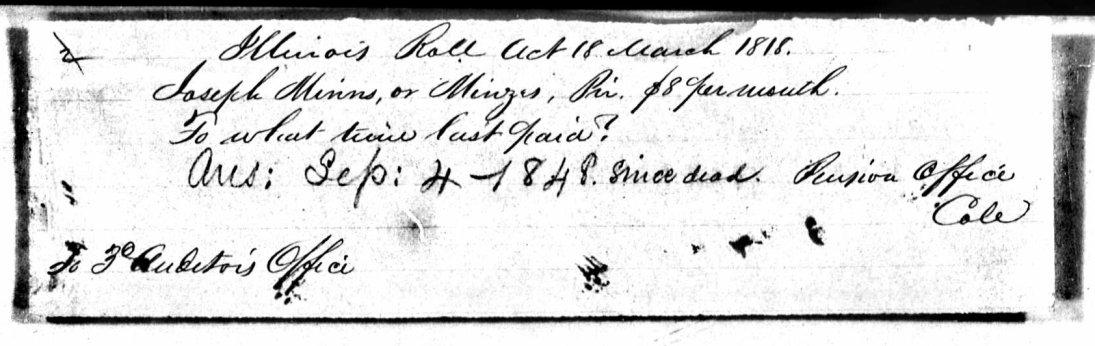 Illinois Roll Act 18 March 1818.
Joseph Minns, or Minges, Pri. $8 per month.
To what time last paid?
Ans: Sep: 4 - 1848. Since dead. Pension Office
Cole
To 3d Auditor's Office